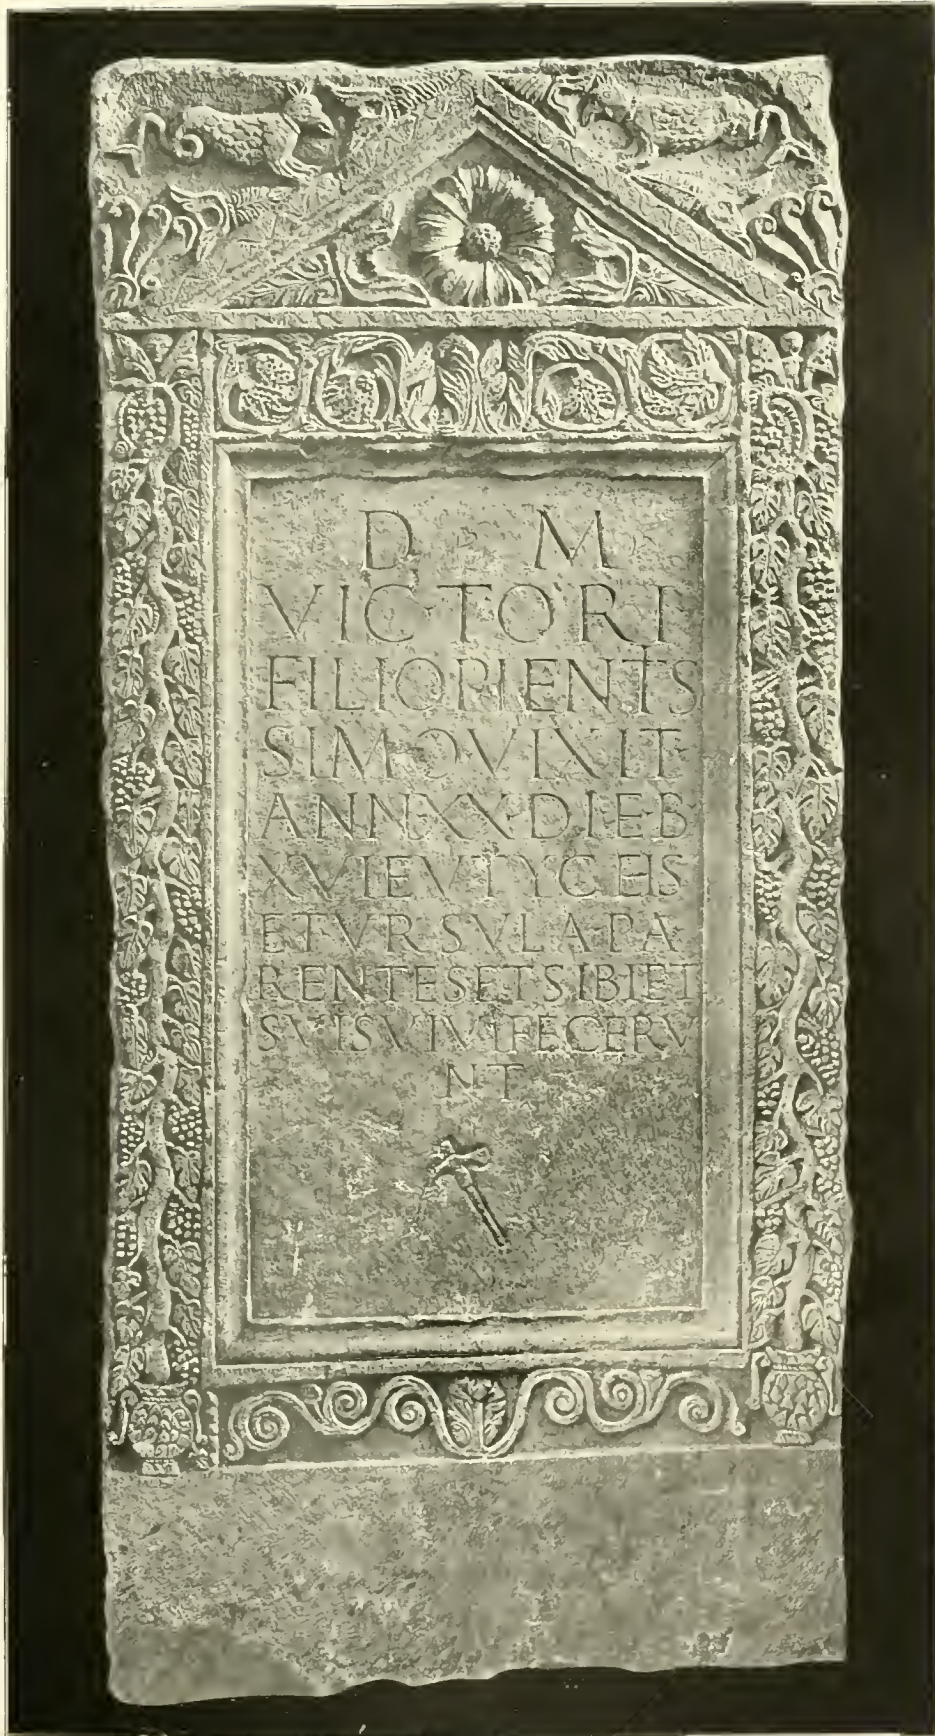 D M
VICTORI
FILIO PIENTS
SIMO QVIXIT
ANN XX DIEB
XVI EVTYCEIS
ET VRSVLA PA
RENTES ET SIBI ET
SVIS VIVI FECERV
NT